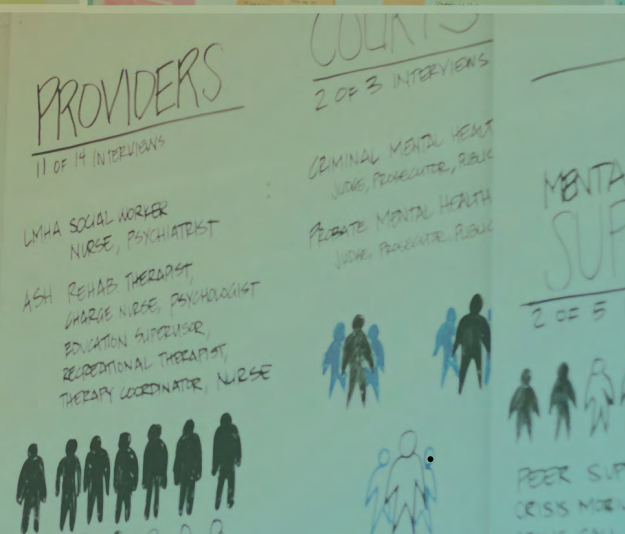 PROVIDERS
11 OF 14 INTERVIEWS
LMHA SOCIAL WORKER
NURSE, PSYCHIATRIST
ASH REHAB THERAPIST,
CHARGE NURSE, PSYCHOLOGIST
EDUCATION SUPERVISOR,
RECREATIONAL THERAPIST,
THERAPY COORDINATOR, NURSE
COURTS
2 OF 3 INTERVIEWS
CRIMINAL MENTAL HEALT
JUDGE, PROSECUTOR, PUBLIC
PROBATE MENTAL HEALTH
JUDGE, PROSECUTOR, PUBLIC
MENTA
SUP
2 OF 5
PEER SUP
CRISIS MOBI